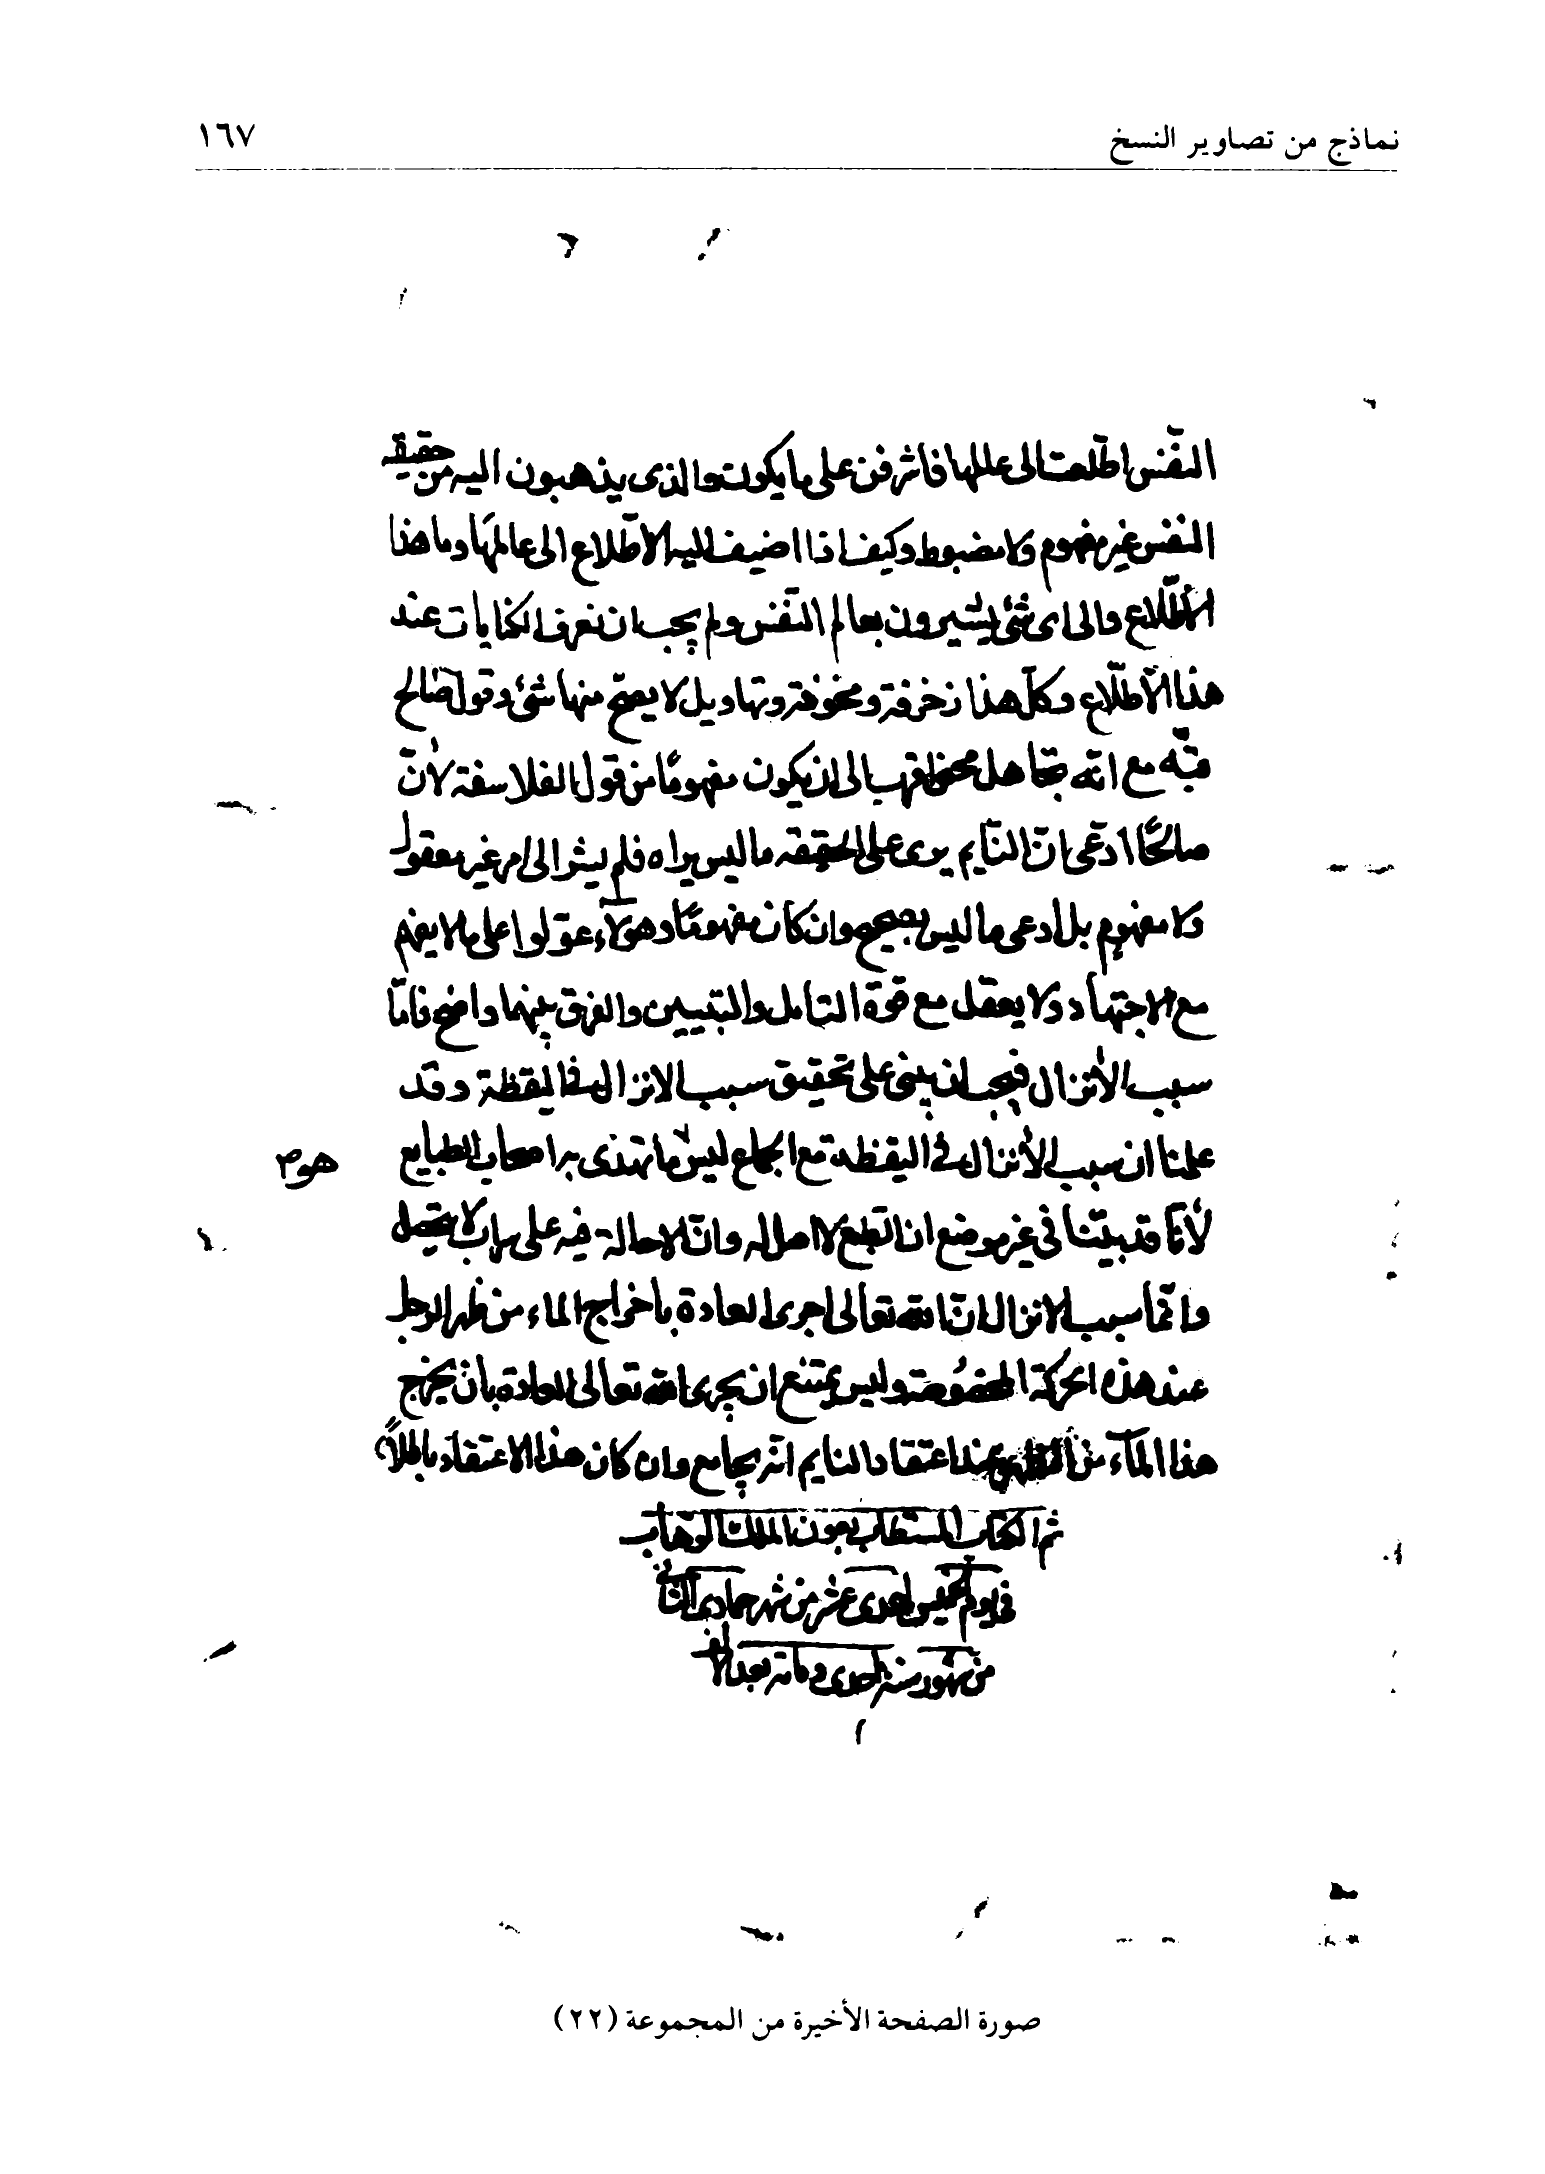 نماذج من تصاوير النسخ ١٦٧
النّفس اطلعت الى عالمها فاشرفت على ما يكون والذى يذهبون اليه من حقيقة
النفس غير مفهوم ولا مضبوط وكيف اذا اضيف اليه الاطّلاع الى عالمها وما هذا
الأطّلاع والى اى شئ يشيرون بعالم النّفس ولم يجب ان نعرف الكنايات عند
هذا الأطلّاع وكلّ هذا زخرفة ومخرفة وتهاويل لا يصحّ منها شئ وقول صالح
قبّة مع انّه تجاهل محض اقرب الى ان يكون مفهومًا من قول الفلاسفة لأنّ
صالحًا ادّعى انّ النّايم يرى على الحقيقة ما ليس يراه فلم يشر الى امر غير معقول
ولا مفهوم بل ادعى ما ليس بصحيح وان كان مفهومًا وهؤلاء عوّلوا على ما لا يفهم
مع الاجتهاد ولا يعقل مع قوة التامل والتبيين والفرق بينهما واضح فامّا
سبب الأنزال فيجب ان يبنى على تحقيق سبب الانزال فى اليقظة وقد
علمنا ان سبب الأنزال فى اليقظة مع الجماع ليس ما تهذى به اصحاب الطبايع
هو م
لأنّا قد بيّنّا فى غير موضع ان الطبع لا اصل له وانّ الاحالة فيه على سراب لا يتحصل
وانّما سبب الانزال انّ الله تعالى اجرى العادة باخراج الماء من ظهر الرجل
عند هذه الحركة المخصُوصة وليس يمتنع ان يجرى الله تعالى العادة بان يخرج
هذا المآء من الظهر عند اعتقاد النايم انّه يجامع وان كان هذا الاعتقاد باطلاً
تم الكتاب المستطاب بعون الملك الوهاب
فى يوم الخميس احدى عشر من شهر جمادى الثانى
من شهور سنة احدى و مائة بعد الالف
صورة الصفحة الأخيرة من المجموعة (٢٢)